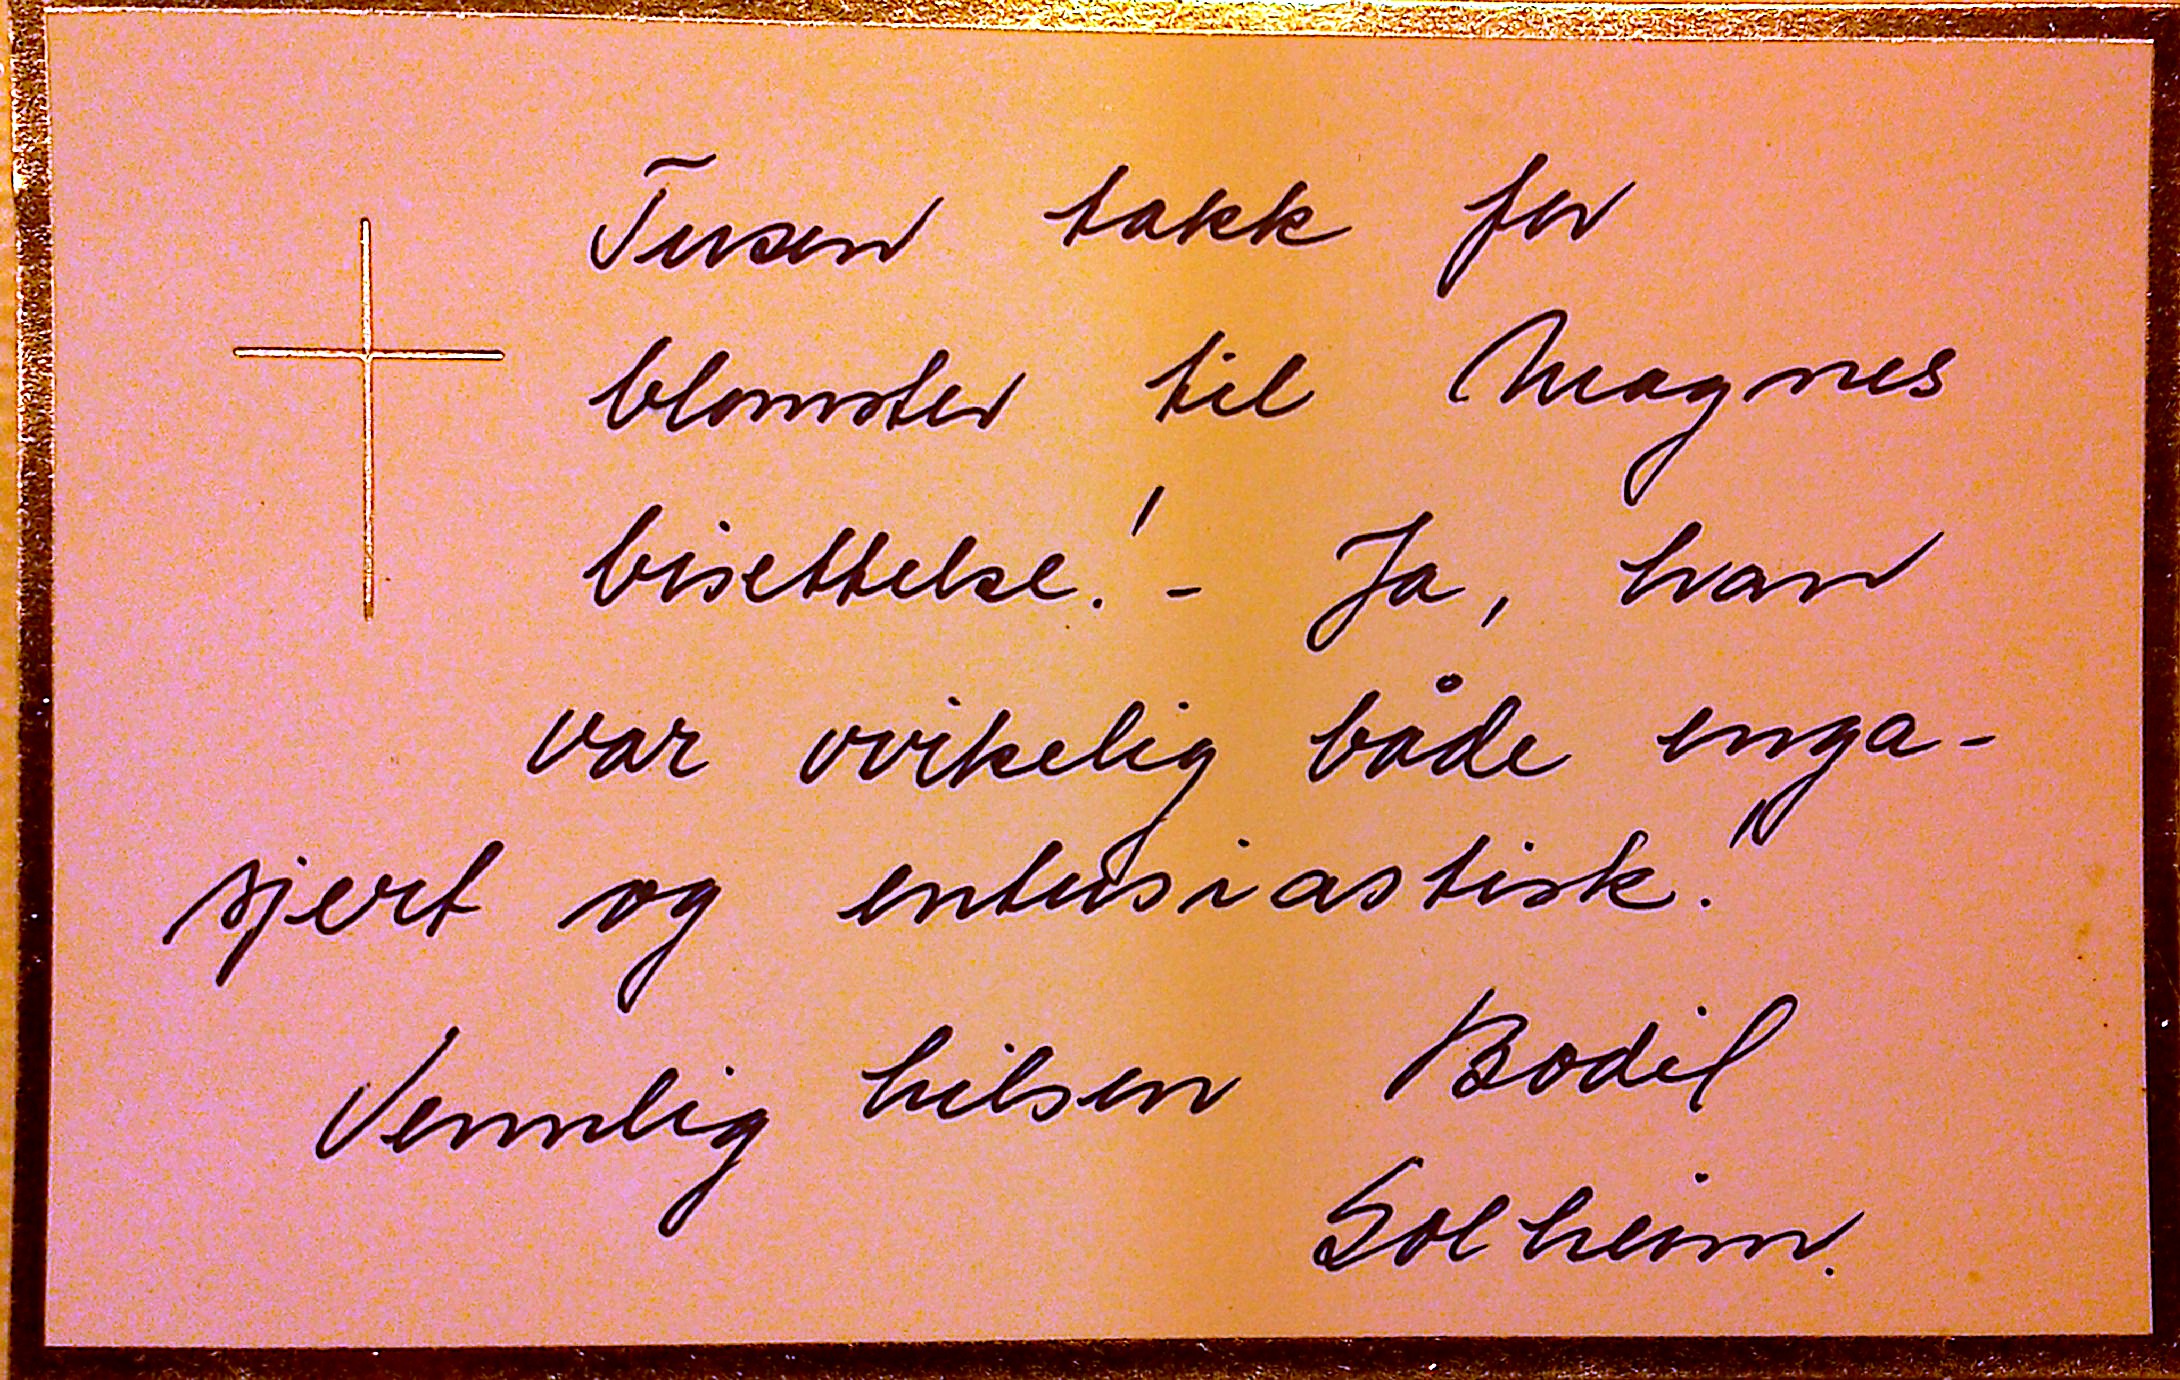 Tusen takk for
blomster til Magnes
bisettelse! - Ja, han
var virkelig både enga-
sjert og entusiastisk!
Vennlig hilsen Bodil
Solheim.